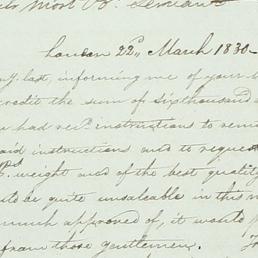 most Ob. Servants
London 22d March 1830-
last, informing me of your
credit the sum of sixthousand
had recd. instructions to remi
said instructions and to reques
weight and of the best quality
be quite unsaleable in this m
much approved of, it would
from those Gentlemen.